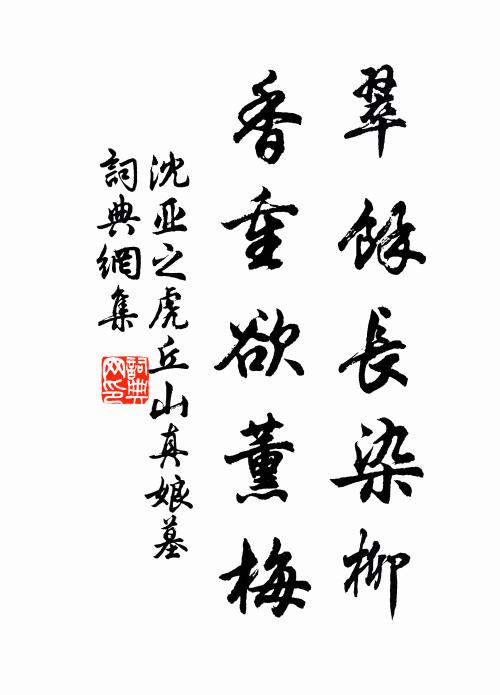 翠餘長染柳
香重欲薰梅
沈亚之虎丘山真娘墓
詞典網集
詞典网印